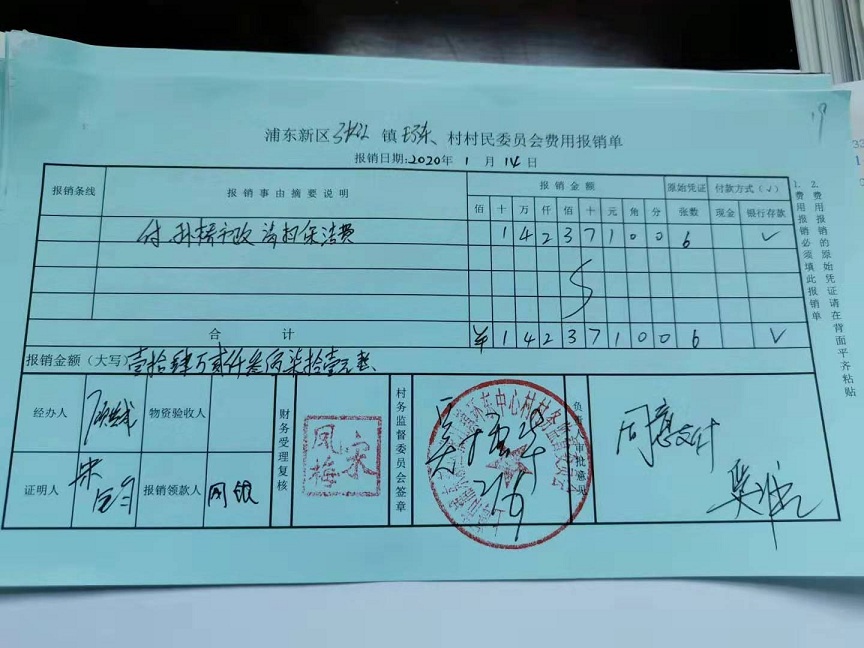 浦东新区 镇 环东 村村民委员会费用报销单
报销日期:2020年 1 月 14 日
报销条线
报销事由摘要说明
报销金额
佰 十 万 仟 佰 十 元 角 分
原始凭证
张数
付款方式(√)
现金 银行存款
付 市政 清扫保洁费
1 4 2 3 7 1 0 0 6 √
合计
¥ 1 4 2 3 7 1 0 0 6 √
报销金额(大写) 壹拾肆万贰仟叁佰柒拾壹元整
经办人
物资验收人
证明人
报销领款人 网银
财务受理复核
宋凤梅
村务监督委员会签章
负责人审批意见
同意支付
1.费用报销必须填此报销单
2.费用报销的原始凭证请在背面平齐粘贴